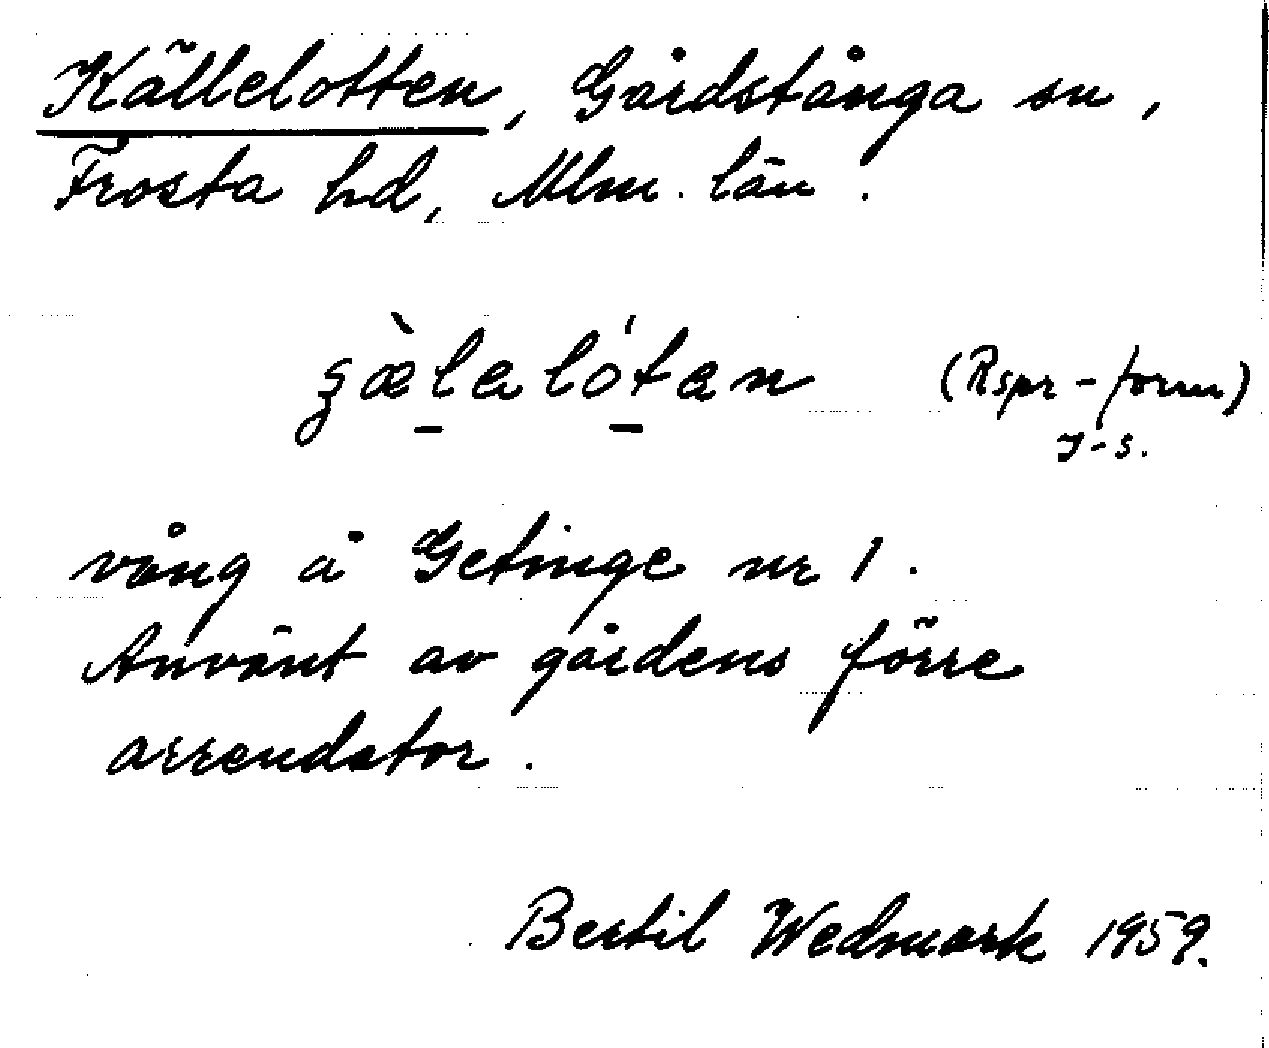 Källelotten, Gårdstånga sn,
Frosta hd, Mlm. län.
ʒæ̀lalótan (Rspr-form)
J-s.
vång å Getinge nr 1.
Använt av gårdens förre
arrendator.
Bertil Wedmark 1959.